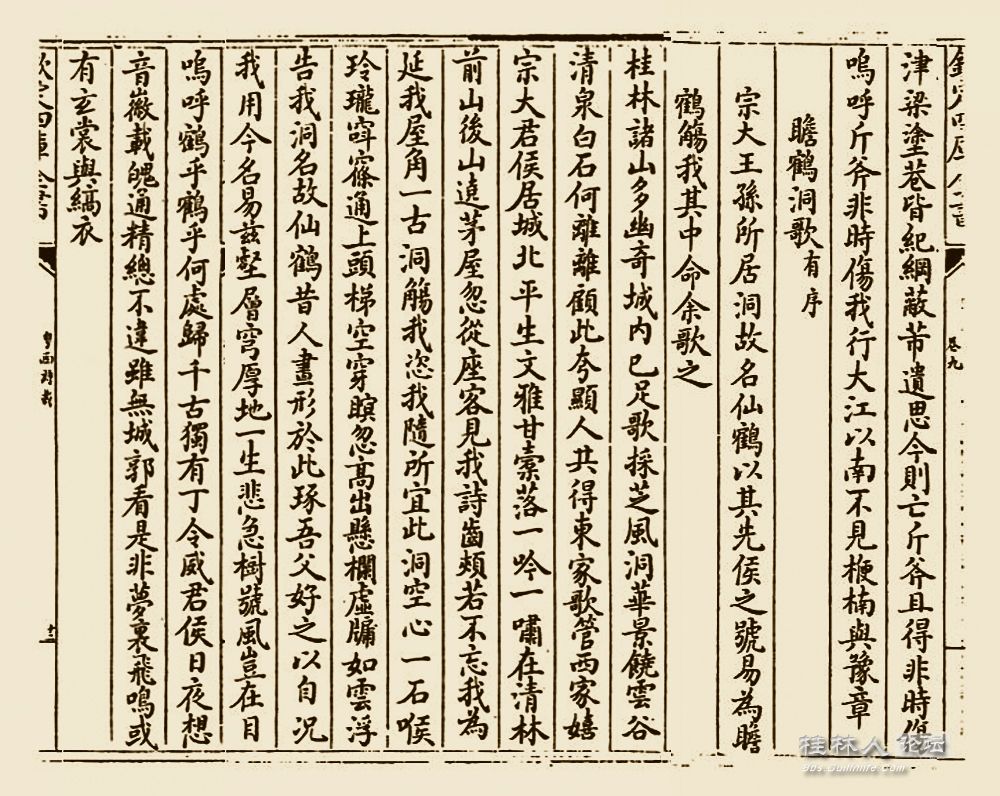 欽定四庫全書
卷九
津梁塗巷皆紀綱蔽芾遺思今則亡斤斧且得非時傷
嗚呼斤斧非時傷我行大江以南不見梗楠與豫章
瞻鶴洞歌有序
宗大王孫所居洞故名仙鶴以其先侯之號易為瞻
鶴觴我其中命余歌之
桂林諸山多幽奇城内已足歌採芝風洞華景饒雲谷
清泉白石何離離顧此夸顯人共得東家歌管西家嬉
宗大君侯居城北平生文雅甘索落一吟一嘯在清林
前山後山遶茅屋忽從座客見我詩齒頰若不忘我為
延我屋角一古洞觴我恣我隨所宜此洞空心一石喉
玲瓏窙窱通上頭梯空穿瞑忽高出懸欄虚牗如雲浮
告我洞名故仙鶴昔人畫形於此琢吾父好之以自况
我用今名易兹壑層穹厚地一生悲急樹號風豈在目
嗚呼鶴乎鶴乎何處歸千古獨有丁令威君侯日夜想
音徽載魄通精總不違雖無城郭看是非夢裏飛鳴或
有玄裳與縞衣
欽定四庫全書
十二
桂林人论坛
bbs.guilinlife.com